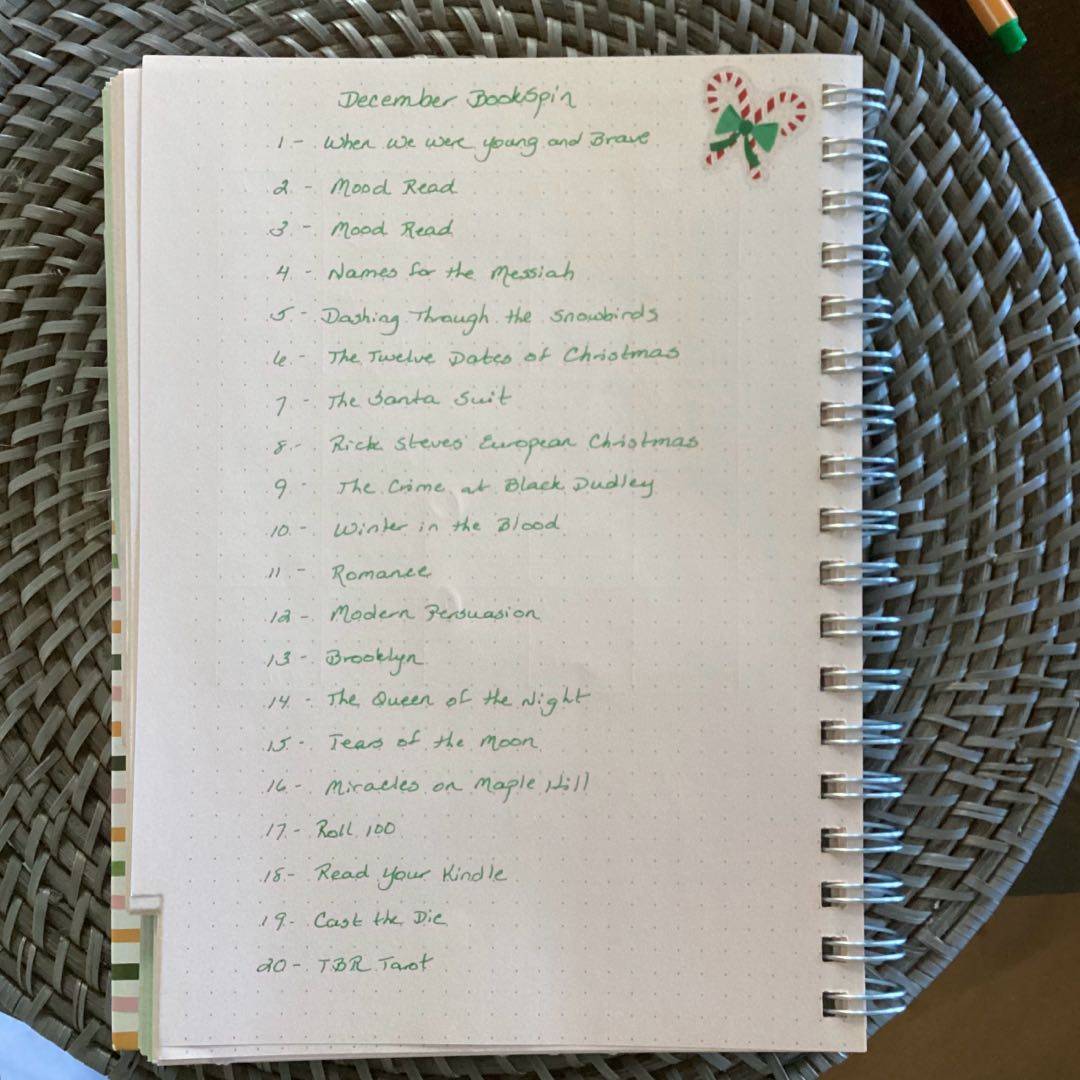 December BookSpin
1 - When We were young and Brave
2 - Mood Read
3 - Mood Read
4 - Names for the Messiah
5 - Dashing Through the Snowbirds
6 - The Twelve Dates of Christmas
7 - The Santa Suit
8 - Rick Steves' European Christmas
9 - The Crime at Black Dudley
10 - Winter in the Blood
11 - Romance
12 - Modern Persuasion
13 - Brooklyn
14 - The Queen of the Night
15 - Tears of the Moon
16 - Miracles on Maple Hill
17 - Roll 100
18 - Read your Kindle
19 - Cast the Die
20 - TBR Tarot